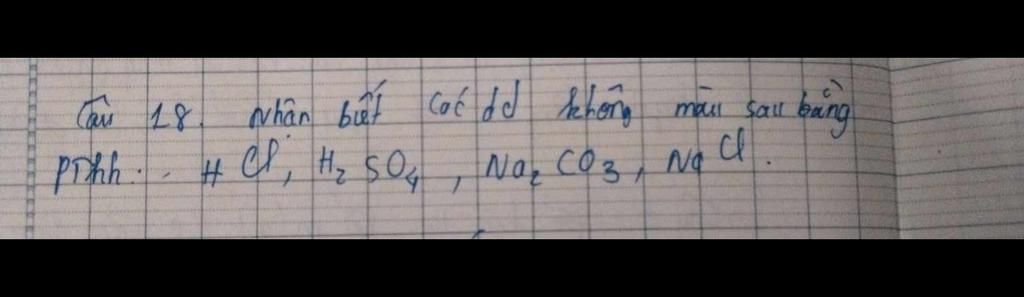 Câu 18. Nhận biết các dd không màu sau bằng
PThh: HCl, H₂SO₄, Na₂CO₃, NaCl.